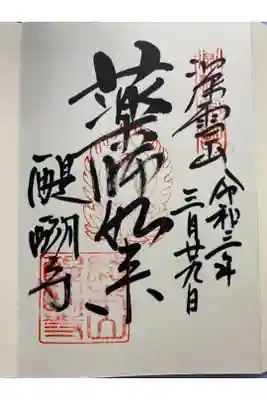 深雪山
令和三年
三月廿九日
薬師如来
醍醐寺